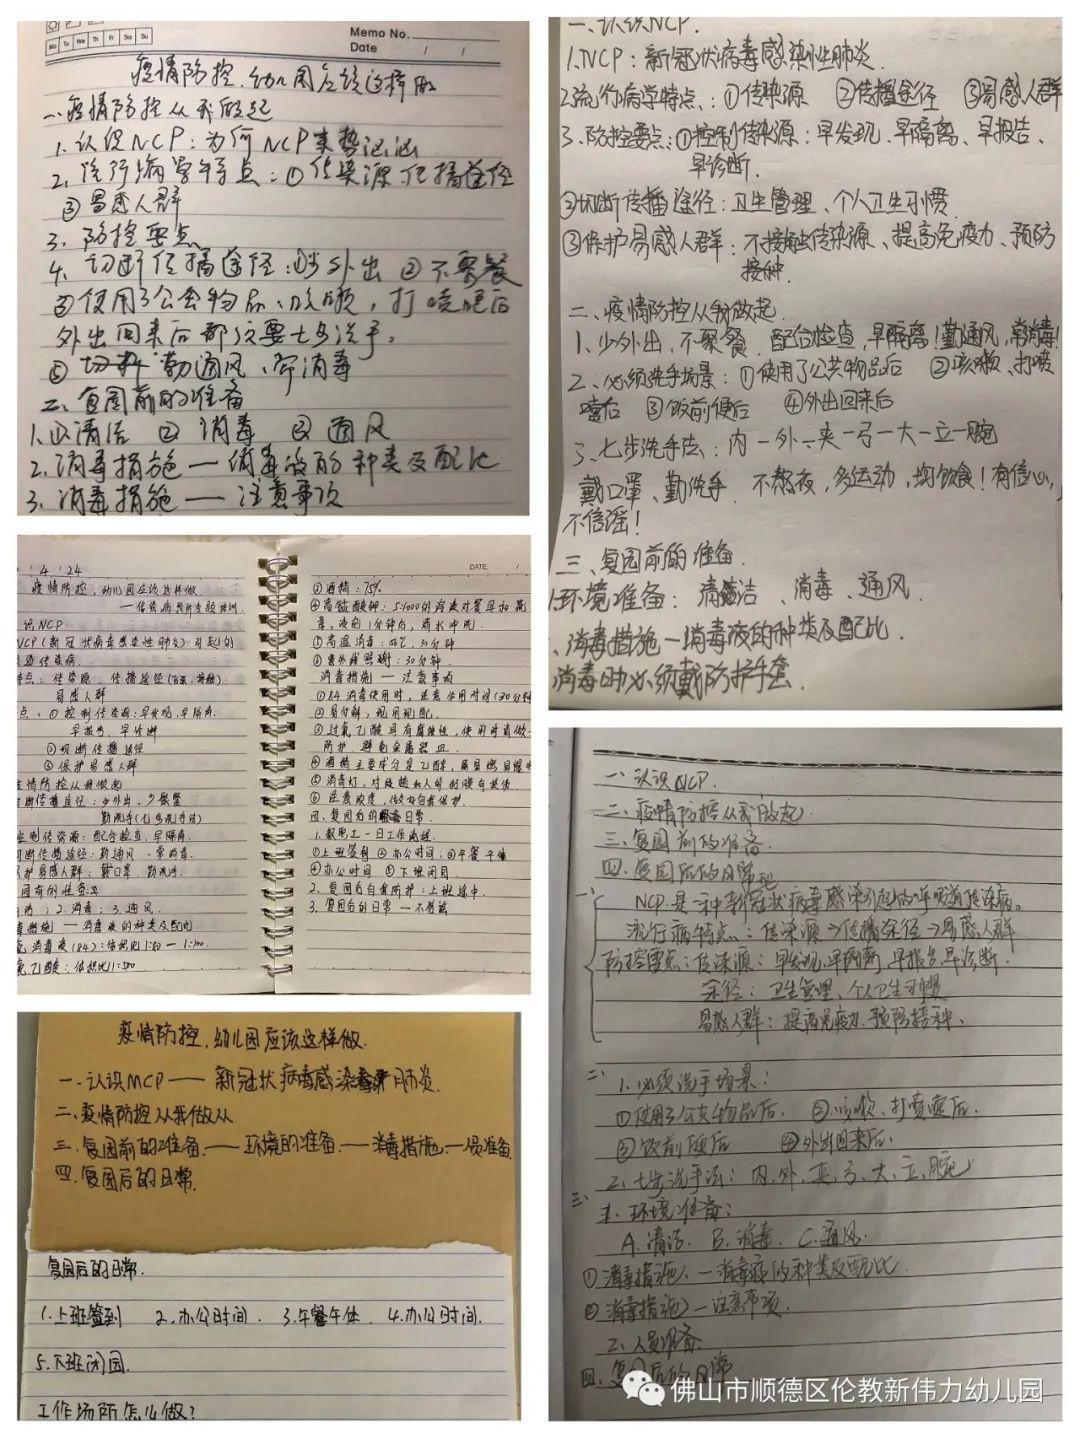 Memo No.
Mo Tu We Th Fr Sa Su
Date / /
疫情防控,幼儿园应该这样做
一、疫情防控从我做起
1. 认识NCP:为何NCP来势汹汹
2. 流行病学特点:①传染源 传播途径
③易感人群
3. 防控要点
4. 切断传播途径:①少外出 ②不聚餐
③使用了公共物品、咳嗽,打喷嚏后
外出回来后都必要七步洗手。
勤通风、常消毒
二、复园前的准备
1. ①清洁 ② 消毒 ③ 通风
2. 消毒措施 — 消毒液的种类及配比
3. 消毒措施 — 注意事项
一、认识NCP.
1.NCP:新冠状病毒感染性肺炎
2.流行病学特点:①传染源 ②传播途径 ③易感人群
3、防控要点:①控制传染源:早发现、早隔离、早报告、
早诊断.
②切断传播途径:卫生管理、个人卫生习惯
③保护易感人群:不接触传染源、提高免疫力、预防
接种.
二、疫情防控从我做起.
1、少外出,不聚餐.配合检查,早隔离!勤通风,常消毒!
2、必须洗手场景:①使用了公共物品后 ②咳嗽、打喷
嚏后 ③饭前便后 ④外出回来后
3、七步洗手法:内一外一夹一弓一大一立一腕
戴口罩、勤洗手 不熬夜,多运动,均饮食!有信心,
不信谣!
三、复园前的准备.
1.环境准备:清洁、消毒、通风.
、消毒措施—消毒液的种类及配比.
消毒时必须戴防护手套.
/ 4 / 24
疫情防控,幼儿园应该这样做
—传染病预防专题培训.
识NCP
NCP(新冠状病毒感染性肺炎)引起的
传染病.
特点:传染源、传播途径
易感人群
点:①控制传染源:早发现,早隔离.
早报告、早诊断
②切断传播途径
③保护易感人群
疫情防控从我做起
切断传播途径:少外出,少聚餐
勤洗手(七步洗手法)
控制传染源:配合检查,早隔离.
切断传播途径:勤通风、常消毒.
护易感人群:戴口罩,勤洗手.
园前的准备
;2.消毒;3.通风.
毒措施 — 消毒液的种类及配比
消毒液(84):体积比1:50 — 1:100.
氧乙酸:体积比1:500
DATE. /
③酒精:75%
⑤高温消毒:
⑥紫外线照射:30分钟.
消毒措施 — 注意事项
①84消毒使用时,注意作用时间(30分钟
②易分解,现用现配.
③过氧乙酸具有腐蚀性,使用时商做
防护.避免金属器皿.
④酒精主要成分是乙醇,属易燃易爆
⑤消毒灯,对皮肤和人的眼膜有损伤.
⑥注意浓度,做好自我保护.
四、复园后的日常.
1.教职工一日工作流程
①上班签到 ②办公时间;③午餐午休
④办公时间 ⑤下班闭园.
2.复园后自我防护:上班途中.
3.复园后的日常
疫情防控,幼儿园应该这样做.
一.认识MCP —— 新冠状病毒感染肺炎.
二、疫情防控从我做从
三、复园前的准备.——环境的准备.——消毒措施.—人员准备.
四.复园后的日常.
复园后的日常.
1.上班签到 2.办公时间. 3.午餐午休 4.办公时间.
5.下班闭园.
工作场所怎么做?
一、认识NCP.
二、疫情防控从我做起.
三、复园前的准备.
四、复园后的日常
一、NCP是一种新冠状病毒感染引起的呼吸道传染病。
流行病特点:传染源→传播途径→易感人群
防控要点:传染源:早发现、早隔离、早报告、早诊断.
途径:卫生管理、个人卫生习惯
易感人群:提高免疫力、预防接种、
二、1.必须洗手场景:
①使用了公共物品后、 ②咳嗽、打喷嚏后.
③饭前便后 ④外出回来后.
2、七步洗手法:内、外、夹、弓、大、立、腕
三、1、环境准备:
A.清洁、 B.消毒、 C.通风.
①消毒措施、一消毒液的种类及配比.
②消毒措施一注意事项.
2、人员准备
四、复园后的日常
佛山市顺德区伦教新伟力幼儿园